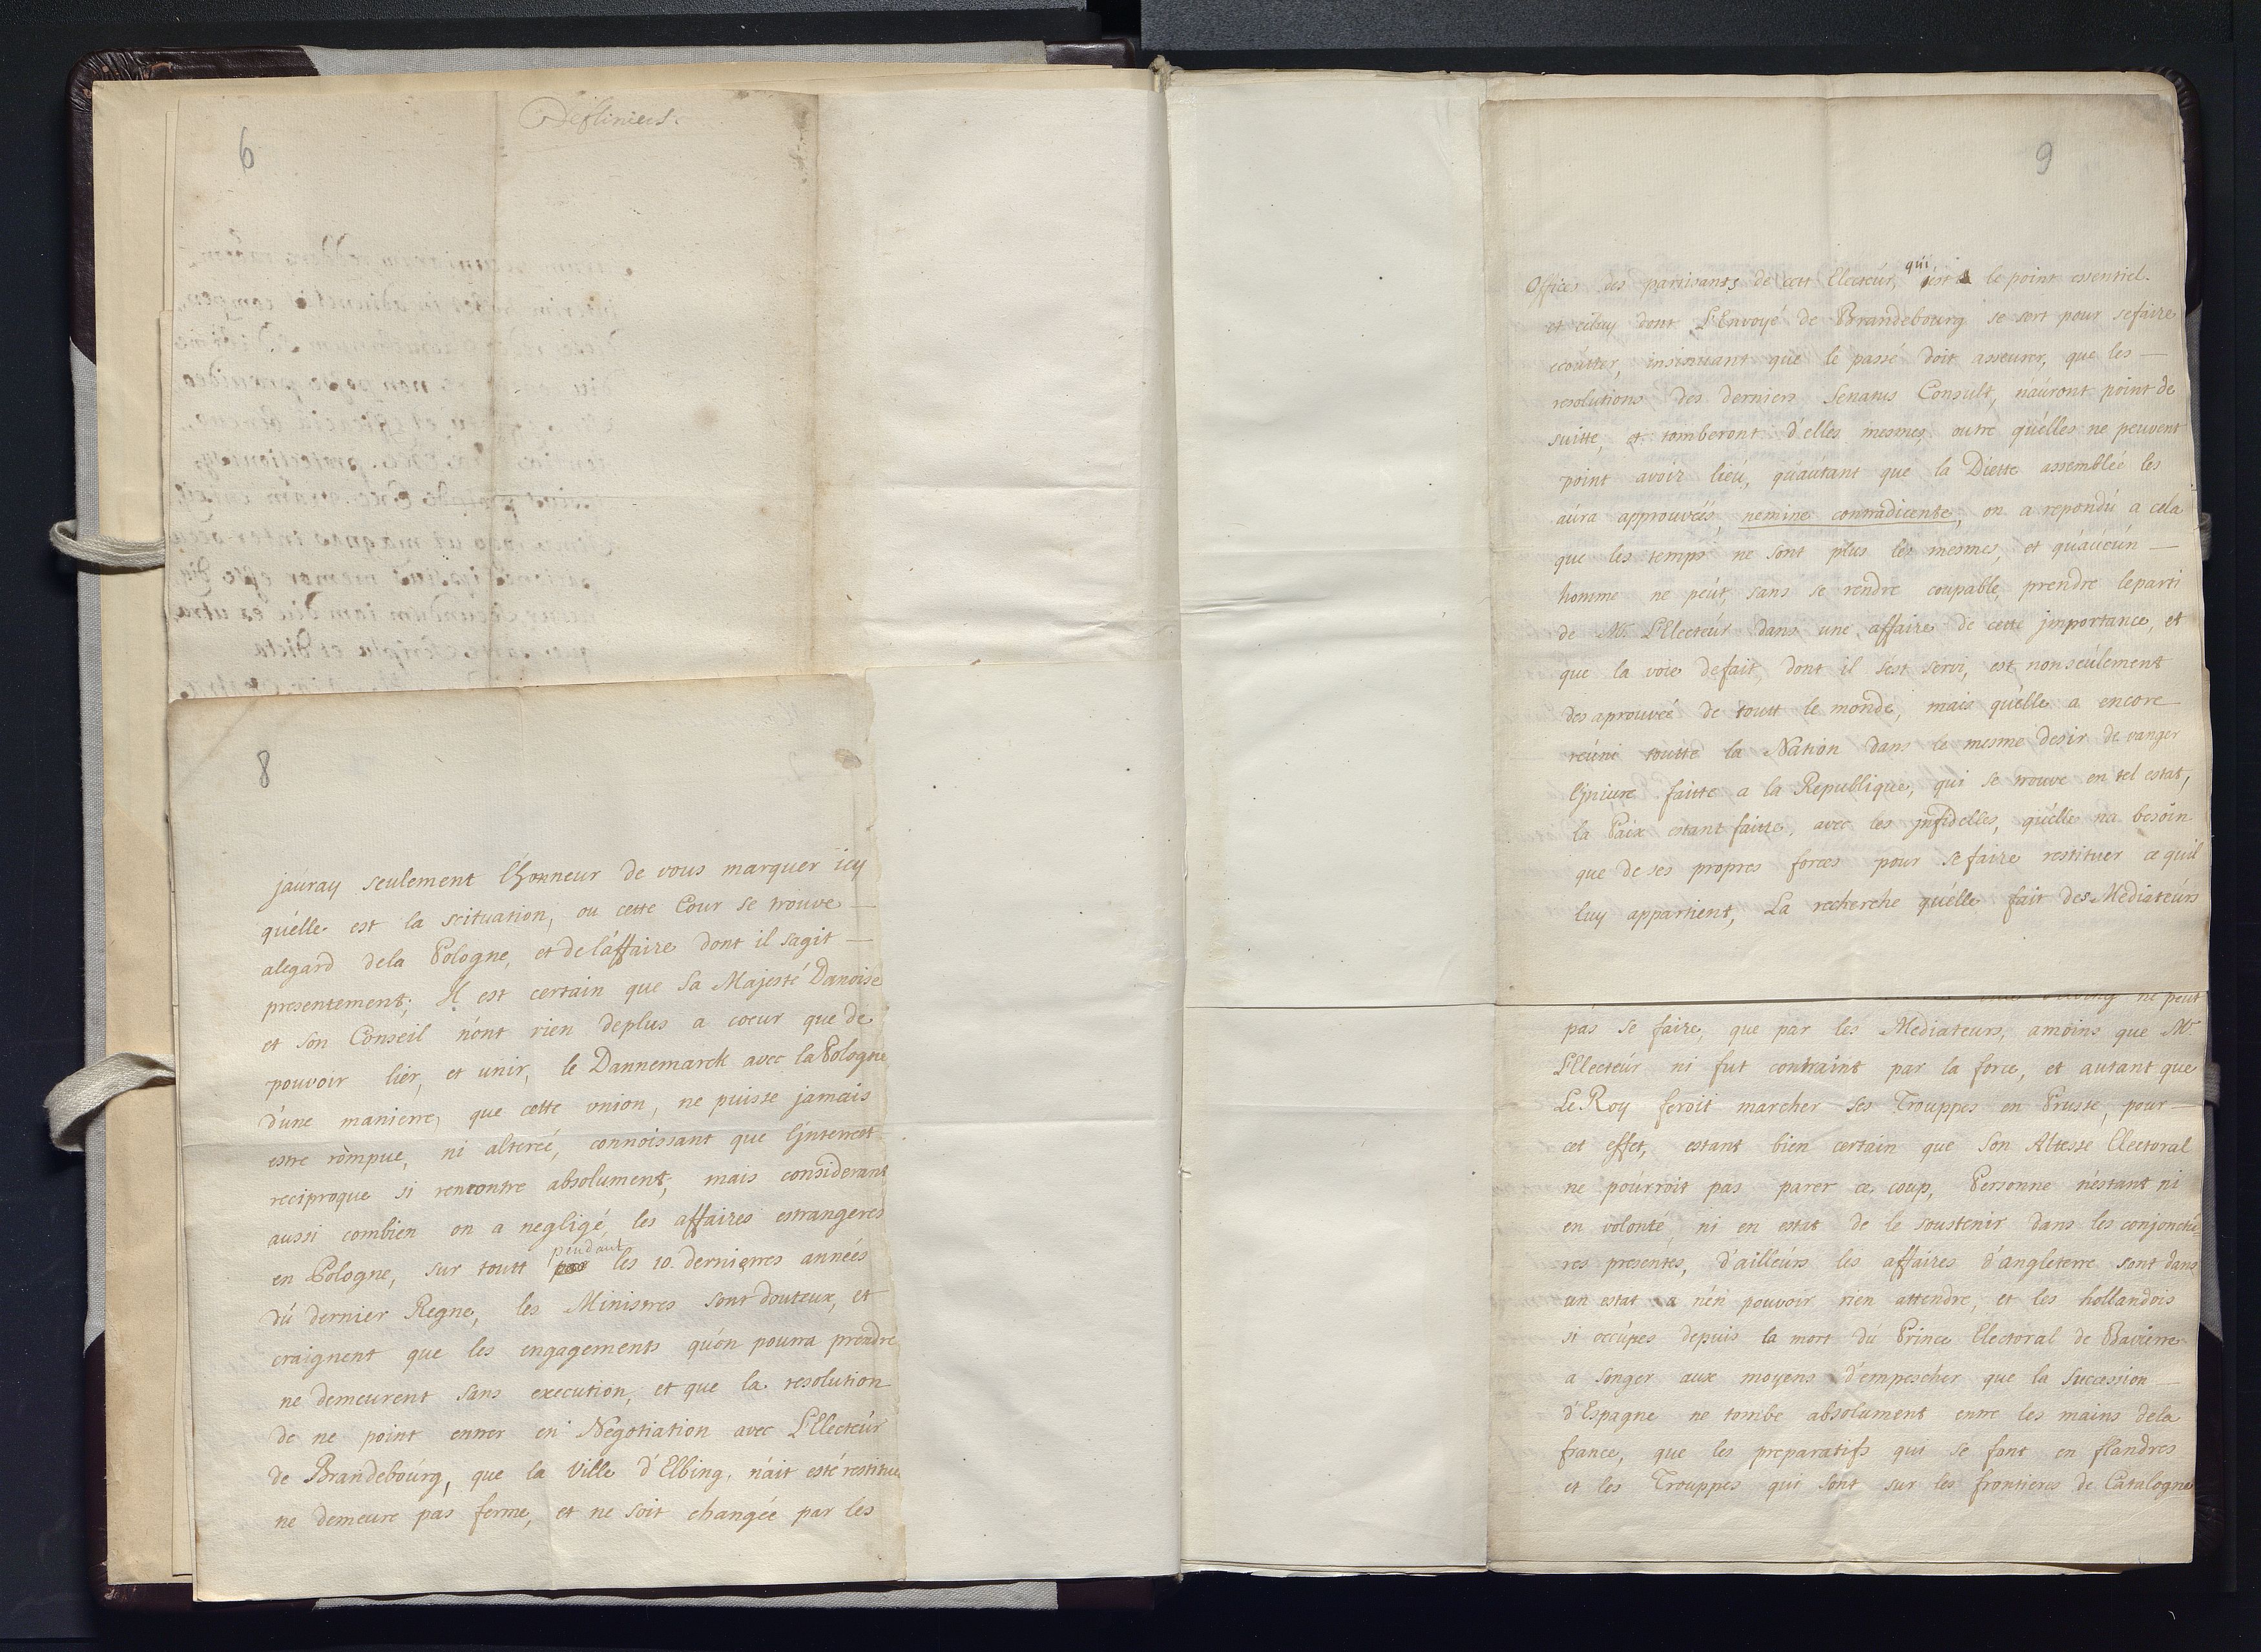 6
8
jauray seulement lhonneur de vous marquer icy
quélle est la scituation, ou cette Cour se trouve —
alegard dela Pologne, et de láffaire dont il sagit —
presentement; Il est certain que Sa Majesté Danoise
et son Conseil nónt rien deplus a coeur que de
pouvoir lier, et unir, le Dannemarck avec la Pologne
dúne manierre, que cette vnion, ne puisse jamais
estre rompue, ni altereé, connoissant que ljnterest
reciproque si rencontre absolument, mais considerant
aussi combien on a negligé, les affaires estrangeres
en Pologne, sur toutt pendant les 10. dernierres années
dú dernier Regne, les Ministres sont douteux, et
craignent que les engagements qúon pourra prendre
ne demeurent sans execution, et que la resolution
de ne point entrer en Négotiation avec L'Electeúr
de Brandeboúrg, que la Ville d'Elbing, náit esté restitue
ne demeure pas ferme, et ne soit changée par les
9
Offices des partisants de cett Electeúr, qui est le point essentiel.
et celuy dont L'Envoyé de Brandebourg se sert pour sefaire
ecoutter, insinuant que le passé doit asseurer, que les —
resolutions des derniers Senatus Consult, naúront point de
suitte, et tomberont d'elles mesmes, outre qúelles ne peuvent
point avoir lieú, quáutant que la Diette assembleé les
aúra approuvéés, nemine contradicente, on a repondú a cela
que les temps ne sont plus les mesmes, et quáucún —
homme ne peút, sans se rendre coupable, prendre leparti
de Mr. L'Electeúr dans une affaire de cette jmportance, et
que la voie defait, dont il sést servi, est nonseúlement
des aprouveé de toutt le monde, mais qúelle a encore
reúni toutte la Nation dans le mesme desir de vanger
ljniure faitte a la Republique, qui se trouve en tel estat,
la Paix estant faitte, avec les jnfidelles, qúelle na besoin
que de ses propres forces pour se faire restituer ce quil
luy appartient, La recherche qúelle fait des Mediateúrs
ne peut
pas se faire, que par les Mediateurs, amoins que Mr
L'Electeúr ni fut contraint par la force, et autant que
Le Roy feroit marcher ses Trouppes en Prusse, pour —
cet effet, estant bien certain que Son Altesse Electoral
ne poúrroit pas parer ce coup, Personne néstant ni
en volonté, ni en estat de le soustenir dans les conjonctú=
res presentes, d'ailleúrs les affaires d'angleterre sont dans
un estat a nén pouvoir rien attendre, et les hollandois
si occúpes depuis la mort dú Prince Electoral de Bavierre
a songer aux moyens d'empescher que la Succession —
d'Espagne ne tombe absolument entre les mains dela
france, que les preparatifs qui se font en flandres
et les Trouppes qui sont sur les frontieres de Catalogne